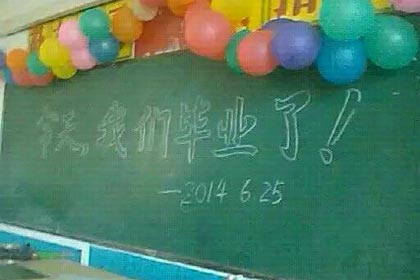 今天,我们毕业了!
—2014 6 25